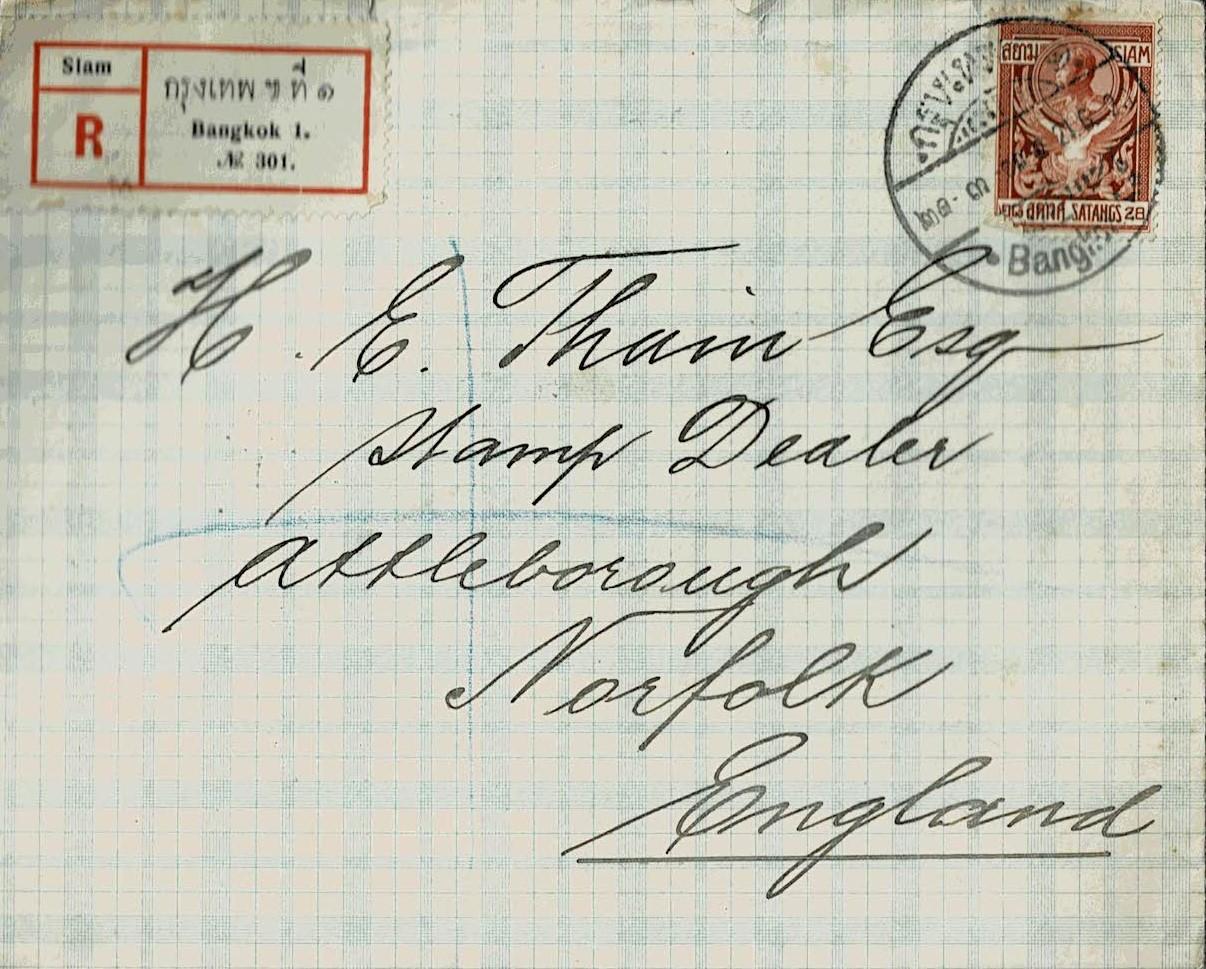 Siam
R
กรุงเทพฯ ที่ ๑
Bangkok 1.
№ 301.
สยาม SIAM
๒๘ สตางค์ SATANGS 28
H. E. Thain Esq
Stamp Dealer
Attleborough
Norfolk
England